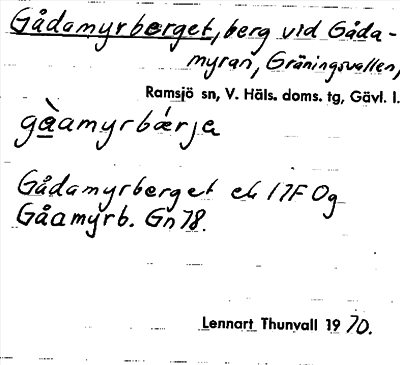 Gådamyrberget, berg vid Gåda-
myran, Gräningsvallen,
Ramsjö sn, V. Häls. doms. tg, Gävl. l.
gå̀amyrbǽrja
Gådamyrberget ek 17F 0g
Gåamyrb. Gn 78.
Lennart Thunvall 1970.